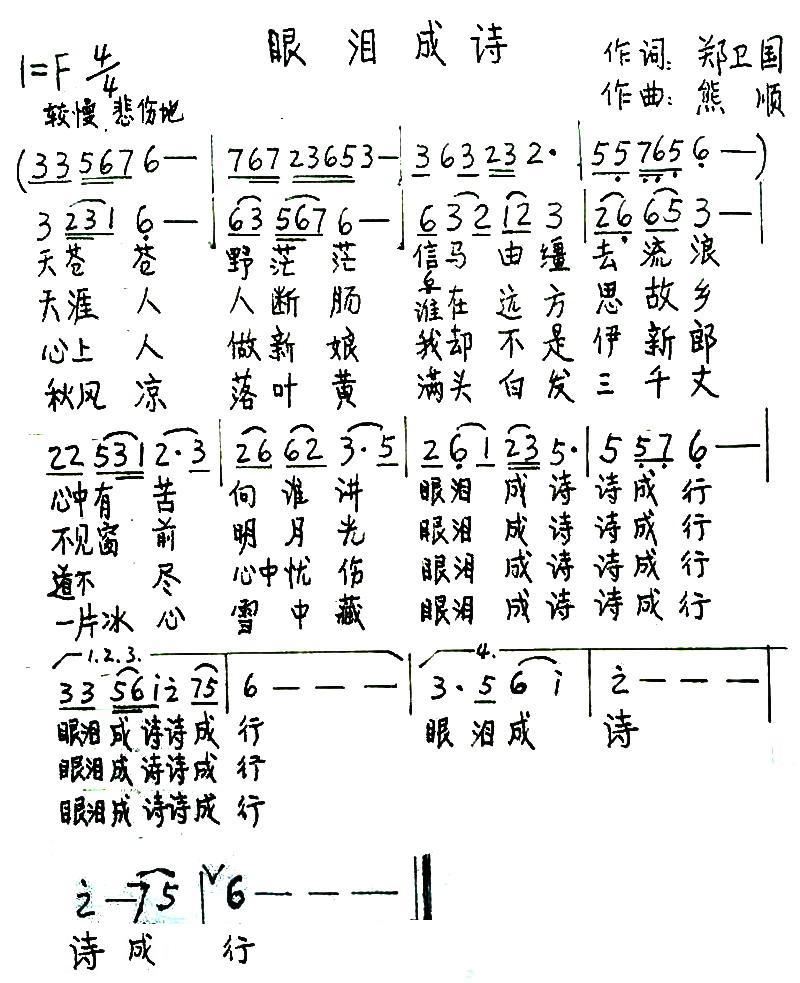 眼泪成诗
1=F 4/4
作词:郑卫国
较慢 悲伤地
作曲:熊 顺
(33 5567 6— | 767 23653— | 3 63 23 2· | 55 7656 —)
3 231 6 — | 63 567 6 — | 6 32 12 3 | 26 65 3 —
天苍 苍 野 茫 茫 信马 由 缰 去 流 浪
天涯 人 人 断 肠 谁在 远 方 思 故 乡
心上 人 做新 娘 我却 不 是 伊 新 郎
秋风 凉 落 叶 黄 满头 白 发 三 千 丈
22 531 2·3 | 26 62 3·5 | 2 61 23 5· | 5 57 6 —
心中有 苦 向 谁 讲 眼泪 成 诗 诗 成 行
不见窗 前 明 月 光 眼泪 成 诗 诗 成 行
道不 尽 心中忧 伤 眼泪 成 诗 诗 成 行
一片冰 心 雪 中 藏 眼泪 成 诗 诗 成 行
1.2.3. 4.
33 56 i 2 75 | 6 — — — | 3· 5 6 i | 2 — — —
眼泪成 诗诗成 行 眼 泪成 诗
眼泪成 诗诗成 行
眼泪成 诗诗成 行
2 — 75 | 6 — — —
诗 成 行